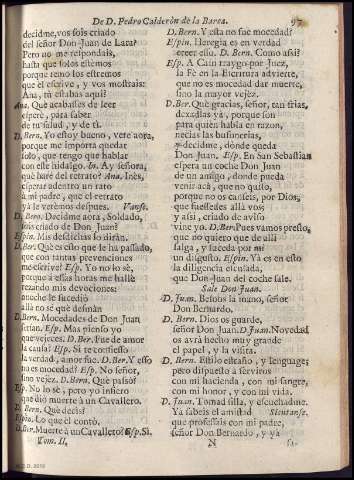 De D. Pedro Calderòn de la Barca. 97
decidme, vos sois criado
del señor Don Juan de Lara?
Pero no me respondais,
hasta que solos estèmos
porque temo los estremos
que el escrive, y vos mostrais:
Ana, tù estabas aqui?
Ana. Què acabasses de leer
esperè, para saber
de tu salud, y de ti.
D. Bern. Yo estoy bueno, vete aora,
porque me importa quedar
solo, que tengo que hablar
con este hidalgo. In. Ay señora,
què harè del retrato? Ana. Inès,
esperar adentro un rato
à mi padre, que el retrato
ya le verèmos despues. Vanse.
D. Bern. Decidme aora, Soldado,
sois criado de Don Juan?
Espin. Mis desdichas lo diràn.
D. Ber. Què es esto que le ha passado,
que con tantas prevenciones
me escrive? Esp. Yo no lo sè,
porque à essas horas me hallè
rezando mis devociones:
anoche le sucediò
allà no sè què desmàn
D. Bern. Mocedades de Don Juan
serian. Esp. Mas pienso yo
que vejeces. D. Ber. Fue de amor
la causa? Esp. Si te confiesso
la verdad, amor fue. D. Ber. Y esso
no es mocedad? Esp. No señor,
sino vejez. D. Bern. Què passò?
Esp. No lo sè, pero yo infiero
que diò muerte à un Cavallero.
D. Bern. Què decìs?
Espin. Lo que èl contò.
D. Ber. Muerte à un Cavallero? Esp. Sì.
Tom. II.
D. Bern. Y esta no fue mocedad?
Espin. Heregia es en verdad
creer esso. D. Bern. Como assi?
Esp. A Caìn traygo por Juez,
la Fè en la Escritura advierte,
que no es mocedad dar muerte,
sino la mayor vejez.
D. Ber. Què gracias, señor, tan frias,
dexadlas ya, porque son
para quien habla en razon,
necias las bufonerias,
y decidme, dònde queda
Don Juan. Esp. En San Sebastian
espera un coche Don Juan
de un amigo, donde pueda
venir acà, que no quiso,
porque no os canseis, por Dios,
que fuessedes allà vos;
y assi, criado de aviso
vine yo. D. Ber. Pues vamos presto,
que no quiero que de alli
salga, y suceda por mi
un disgusto. Espin. Ya es en esto
la diligencia escusada,
que Don Juan del coche sale.
Sale Don Juan.
D. Juan. Besoos la mano, señor
Don Bernardo.
D. Bern. Dios os guarde,
señor Don Juan. D. Juan. Novedad
os avrà hecho muy grande
el papel, y la visita.
D. Bern. Estilo estraño, y lenguage;
pero dispuesto à serviros
con mi hacienda, con mi sangre,
con mi honor, y con mi vida.
D. Juan. Tomad silla, y escuchadme.
Ya sabeis el amistad Sientanse.
que professais con mi padre,
señor Don Bernardo, y ya
N